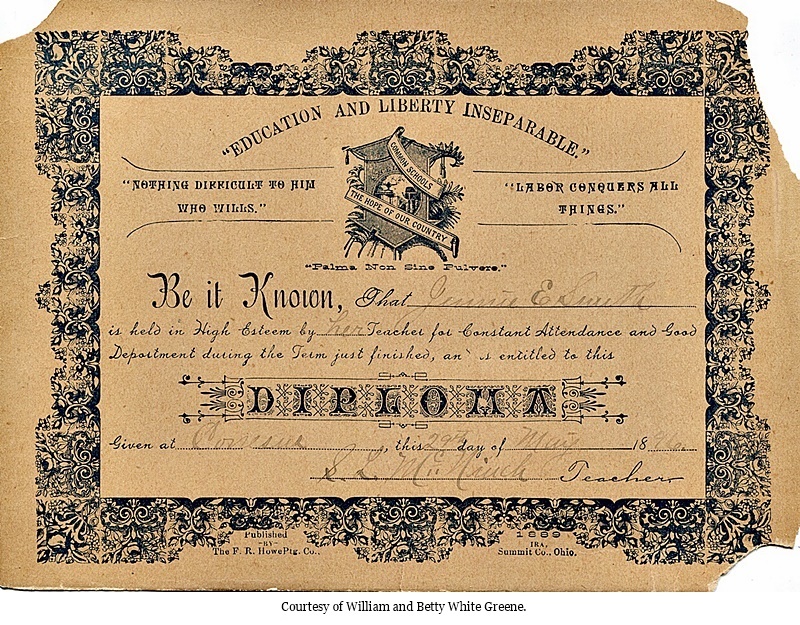 "EDUCATION AND LIBERTY INSEPARABLE."
"NOTHING DIFFICULT TO HIM
WHO WILLS."
COMMON SCHOOLS
THE HOPE OF OUR COUNTRY
"LABOR CONQUERS ALL
THINGS."
"Palma Non Sine Pulvere."
Be it Known, That Jennie E Smith
is held in High Esteem by her Teacher for Constant Attendance and Good
Department during the Term just finished, an is entitled to this
DIPLOMA
Given at , this 29th day of May 18
S. L. Teacher
Published
-BY-
The F. R. Howe Ptg. Co.,
1889
IRA,
Summit Co., Ohio.
Courtesy of William and Betty White Greene.